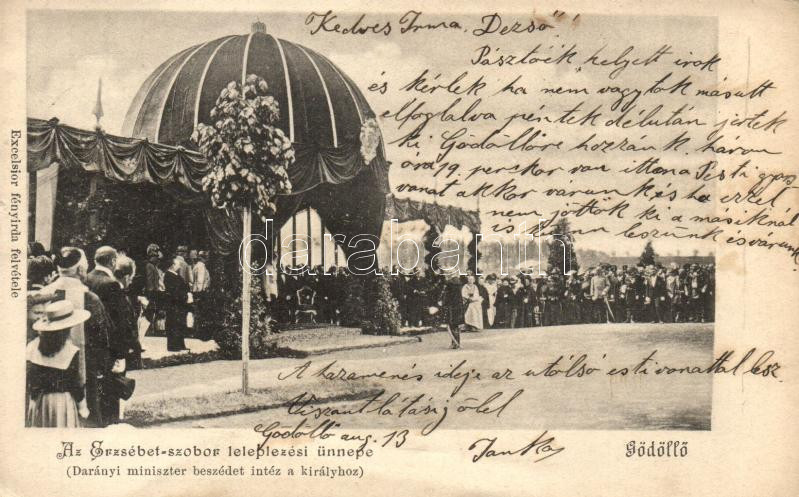 Kedves Irma, Dezső!
Pásztóék helyett irok
és kérlek ha nem vagytok másutt
elfoglalva péntek délután jertek
ki Gödöllőre hozzánk. három
óra 19. perckor van ittona Pesti gyors
vonat akkor várunk és ha ezzel
nem jöttök ki a másiknál
is künn leszünk és várunk
A hazamenés ideje az utólsó esti vonattal lesz.
Viszontlátásig ölel
Gödöllő aug. 13 Janka
darabanth.com
Excelsior fényirda felvétele
Az Erzsébet-szobor leleplezési ünnepe
(Darányi miniszter beszédet intéz a királyhoz)
Gödöllő